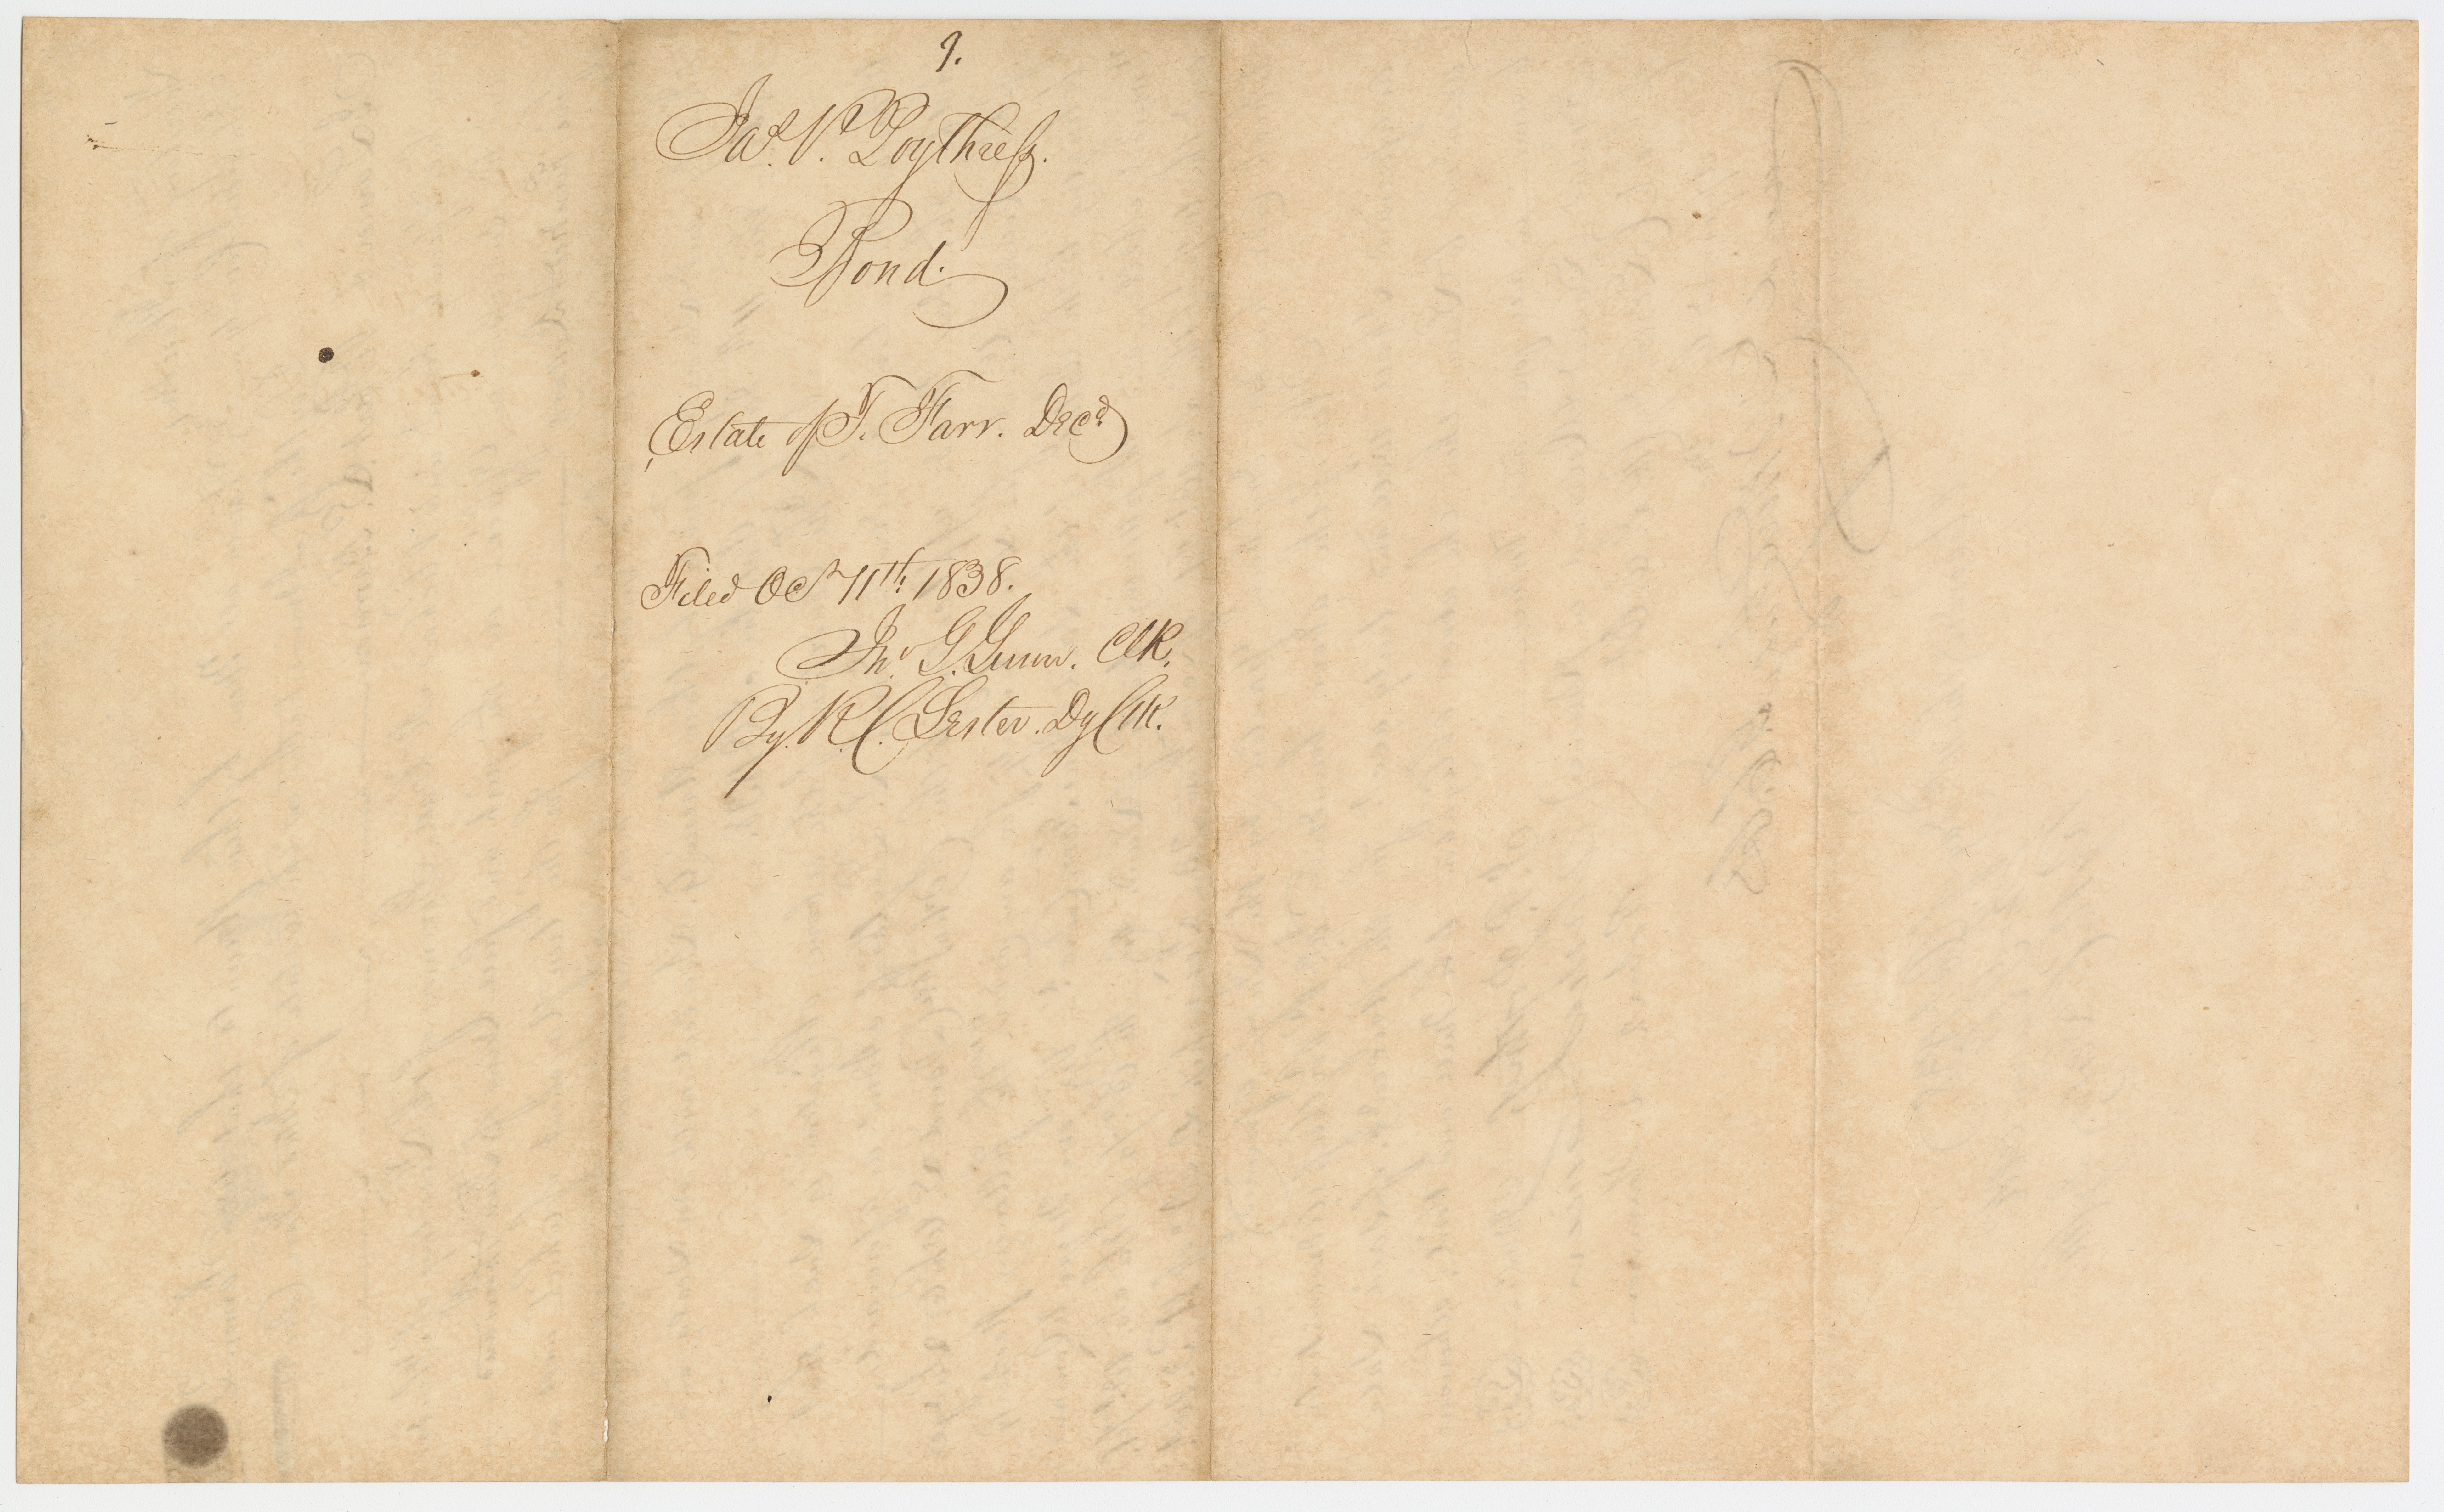 9.
Jas. P. Poythress.
Bond.
Estate of T. Farr. Decd
Filed Oct 11th. 1838.
Jno. G. Gunn. Clk.
By. R. C. Lester. Dy Clk.